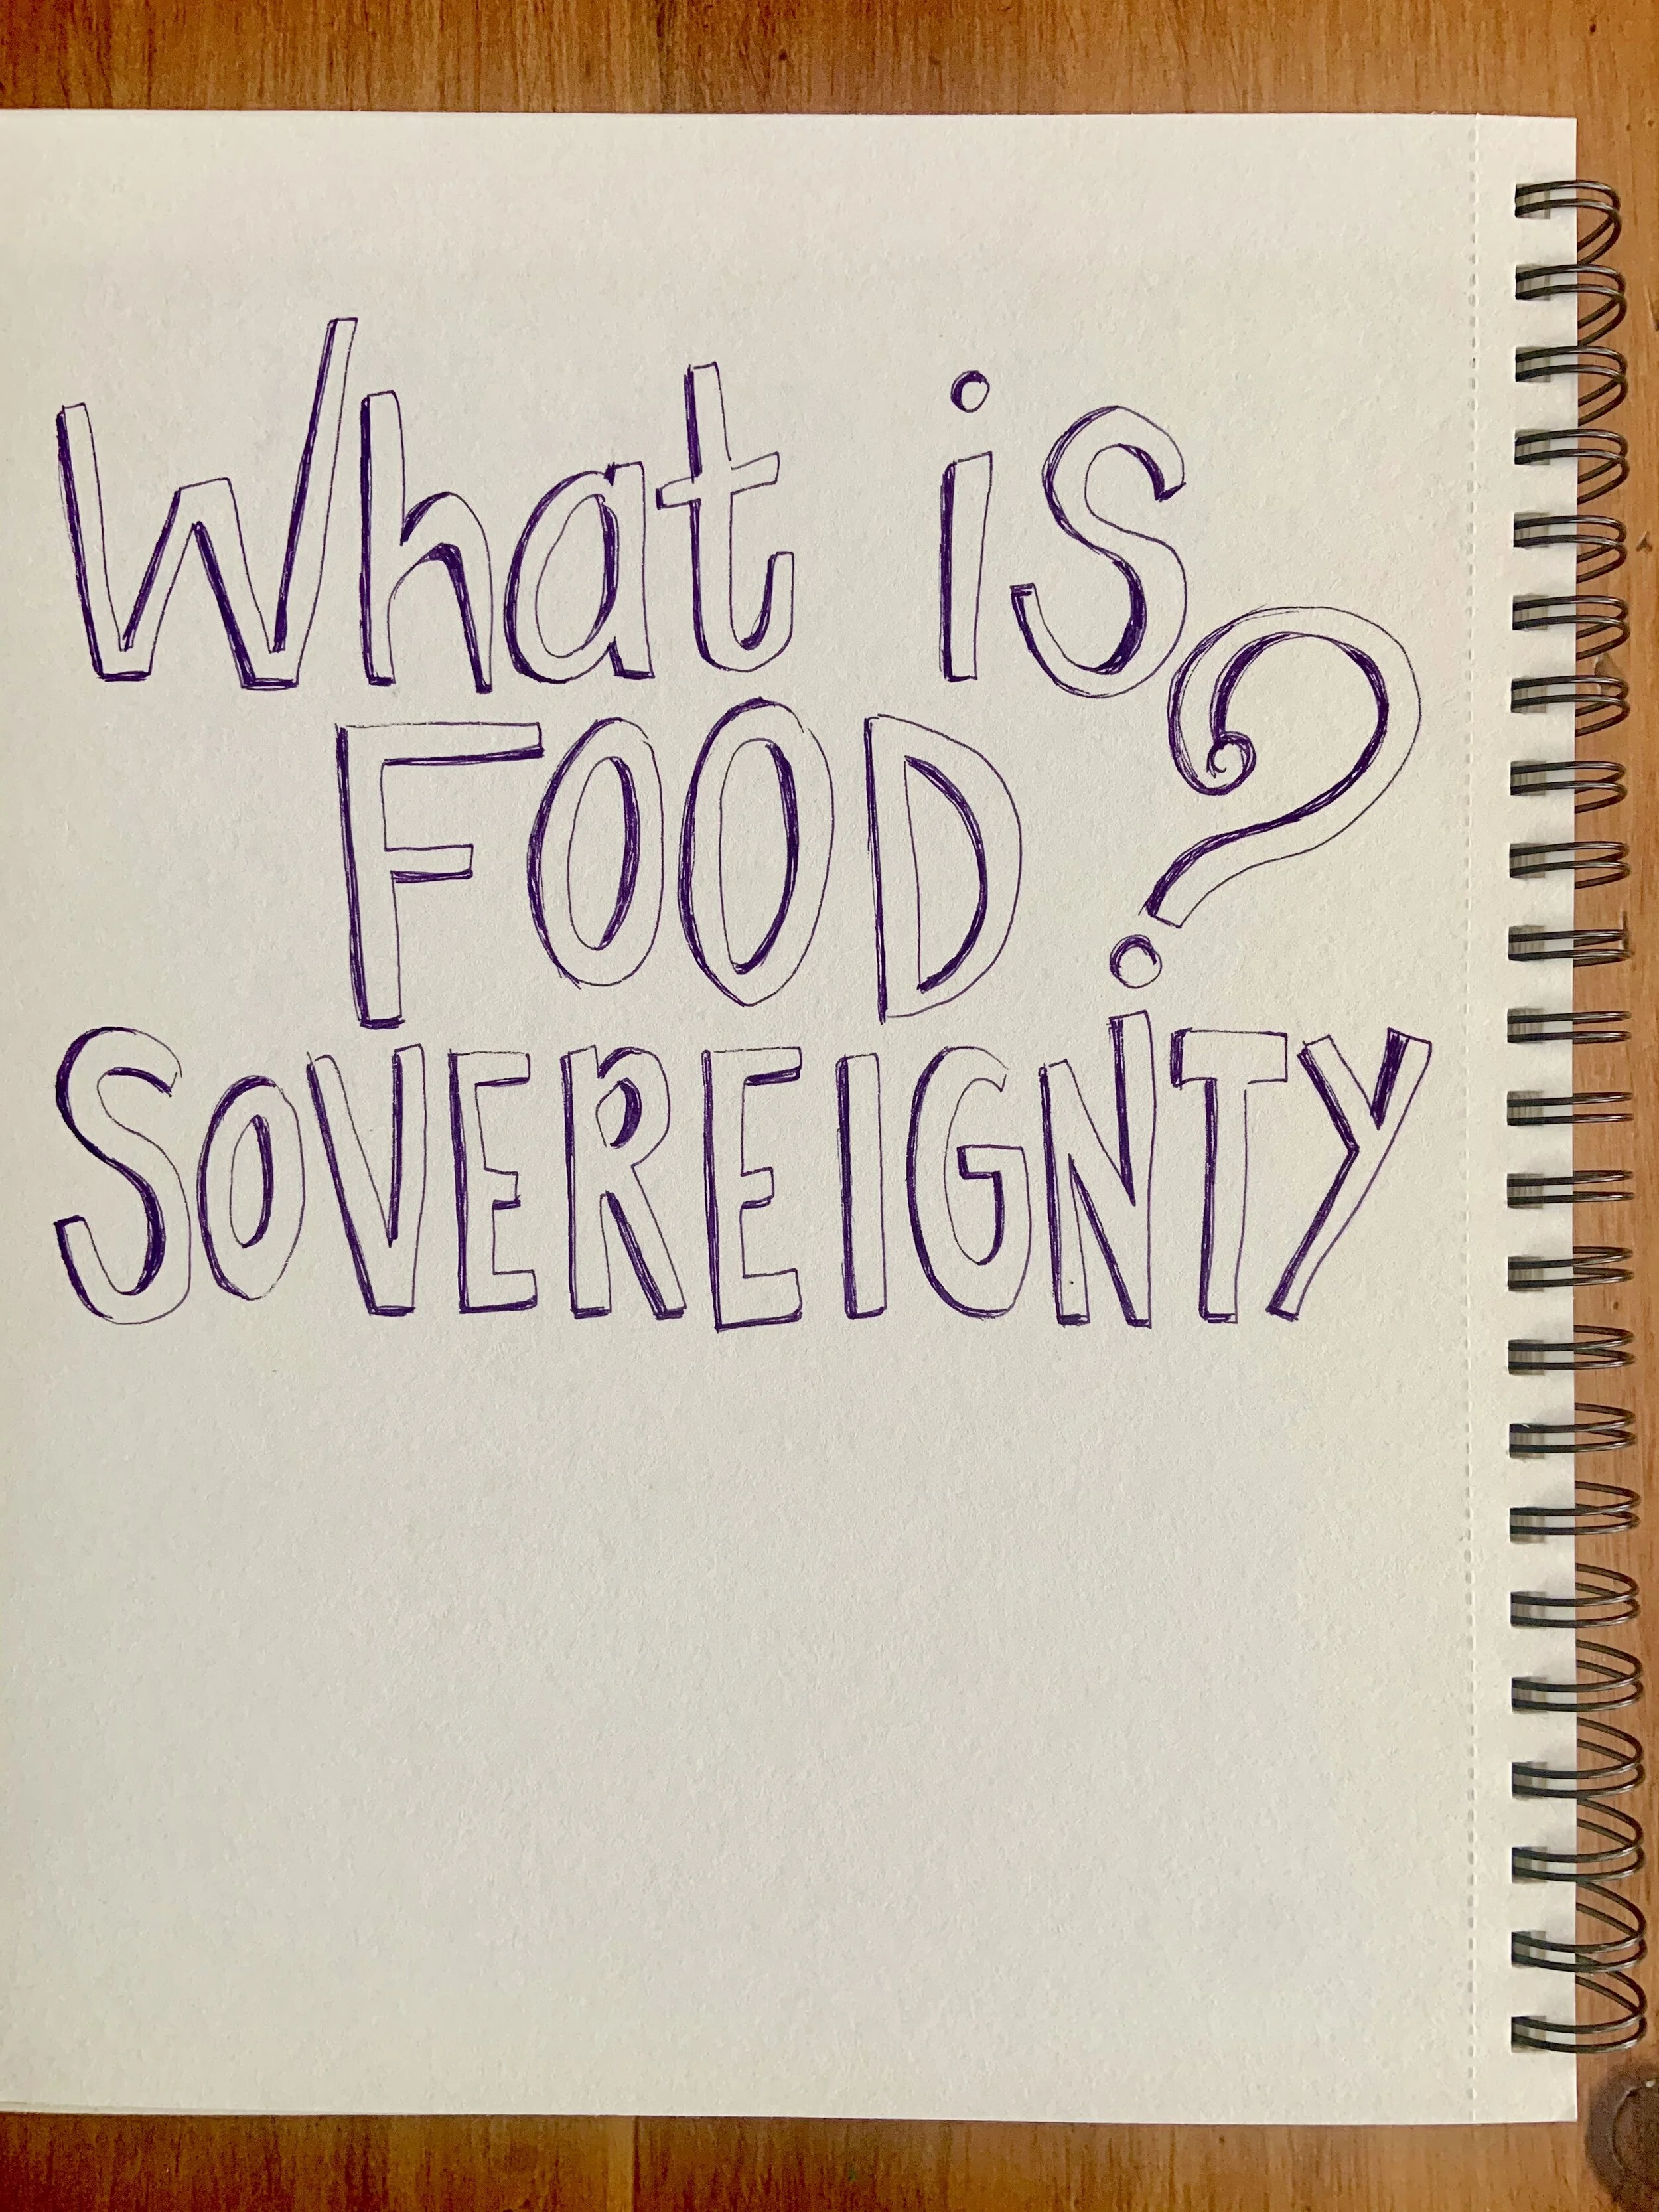 What is
FOOD ?
SOVEREIGNTY